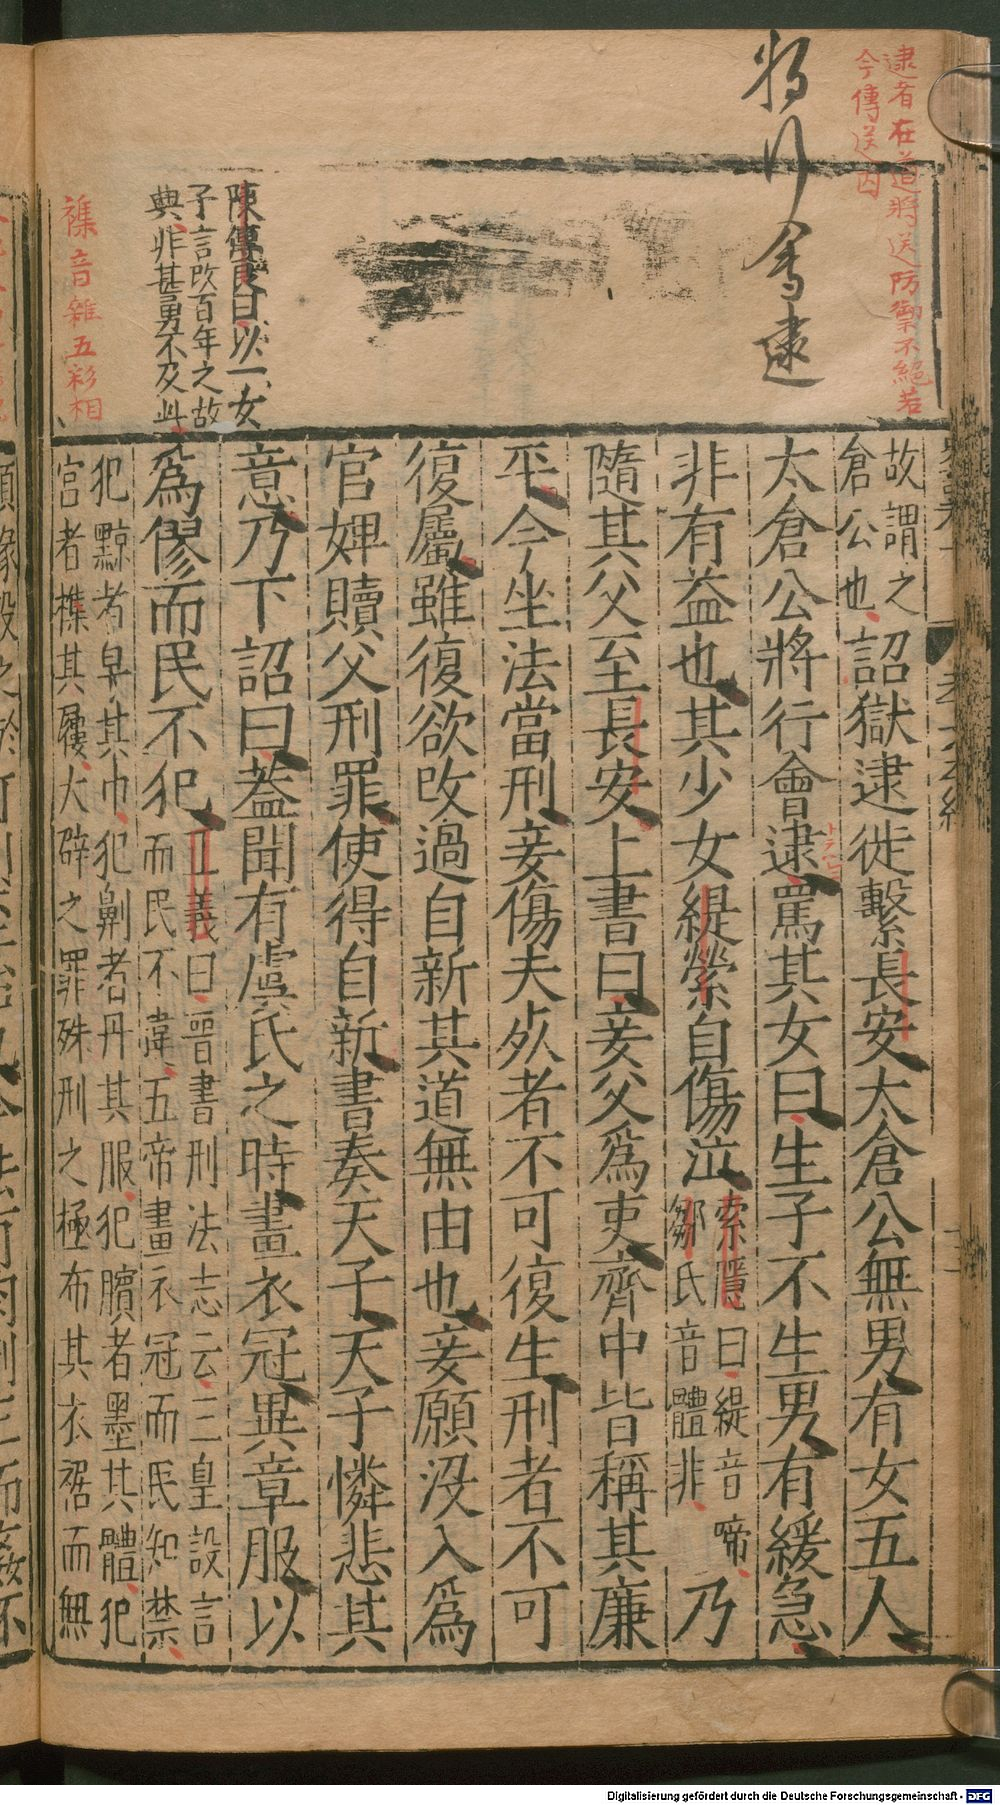 逮者在道將送防禦不絕若
今傳送囚
將行會逮
陳傅良曰以一女
子言改百年之故
典非甚勇不及此
襍音雜五彩相
故謂之
倉公也
詔獄逮徙繫長安太倉公無男有女五人
太倉公將行會逮罵其女曰生子不生男有緩急
非有益也其少女緹縈自傷泣
索隱曰緹音啼
鄒氏音體非
乃
隨其父至長安上書曰妾父爲吏齊中皆稱其廉
平今坐法當刑妾傷夫死者不可復生刑者不可
復屬雖復欲改過自新其道無由也妾願沒入爲
官婢贖父刑罪使得自新書奏天子天子憐悲其
意乃下詔曰蓋聞有虞氏之時畫衣冠異章服以
爲僇而民不犯
正義曰晉書刑法志云三皇設言
而民不違五帝畫衣冠而民知禁
犯黥者皁其巾犯劓者丹其服犯臏者墨其體犯
宮者襍其屨大辟之罪殊刑之極布其衣裾而無
Digitalisierung gefördert durch die Deutsche Forschungsgemeinschaft - DFG